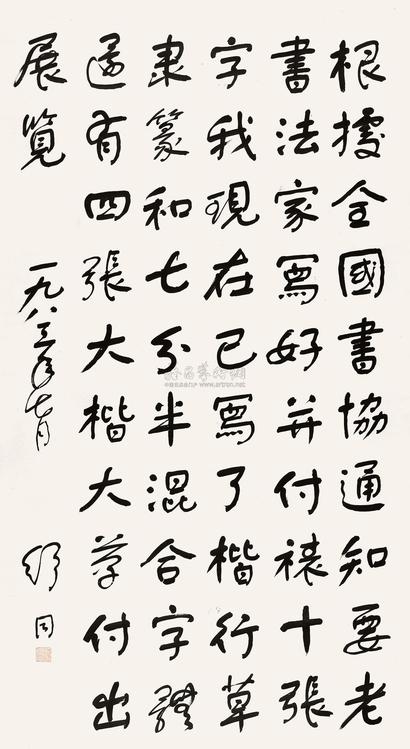 根據全國書協通知要老
書法家寫好并付裱十張
字我現在已寫了楷行草
隶篆和七分半混合字體
還有四張大楷大草付出
展覽
一九八三年七月
舒同